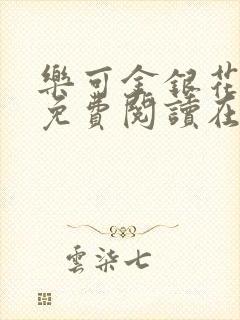 樂可金銀花
免費閱讀在
雲柒七